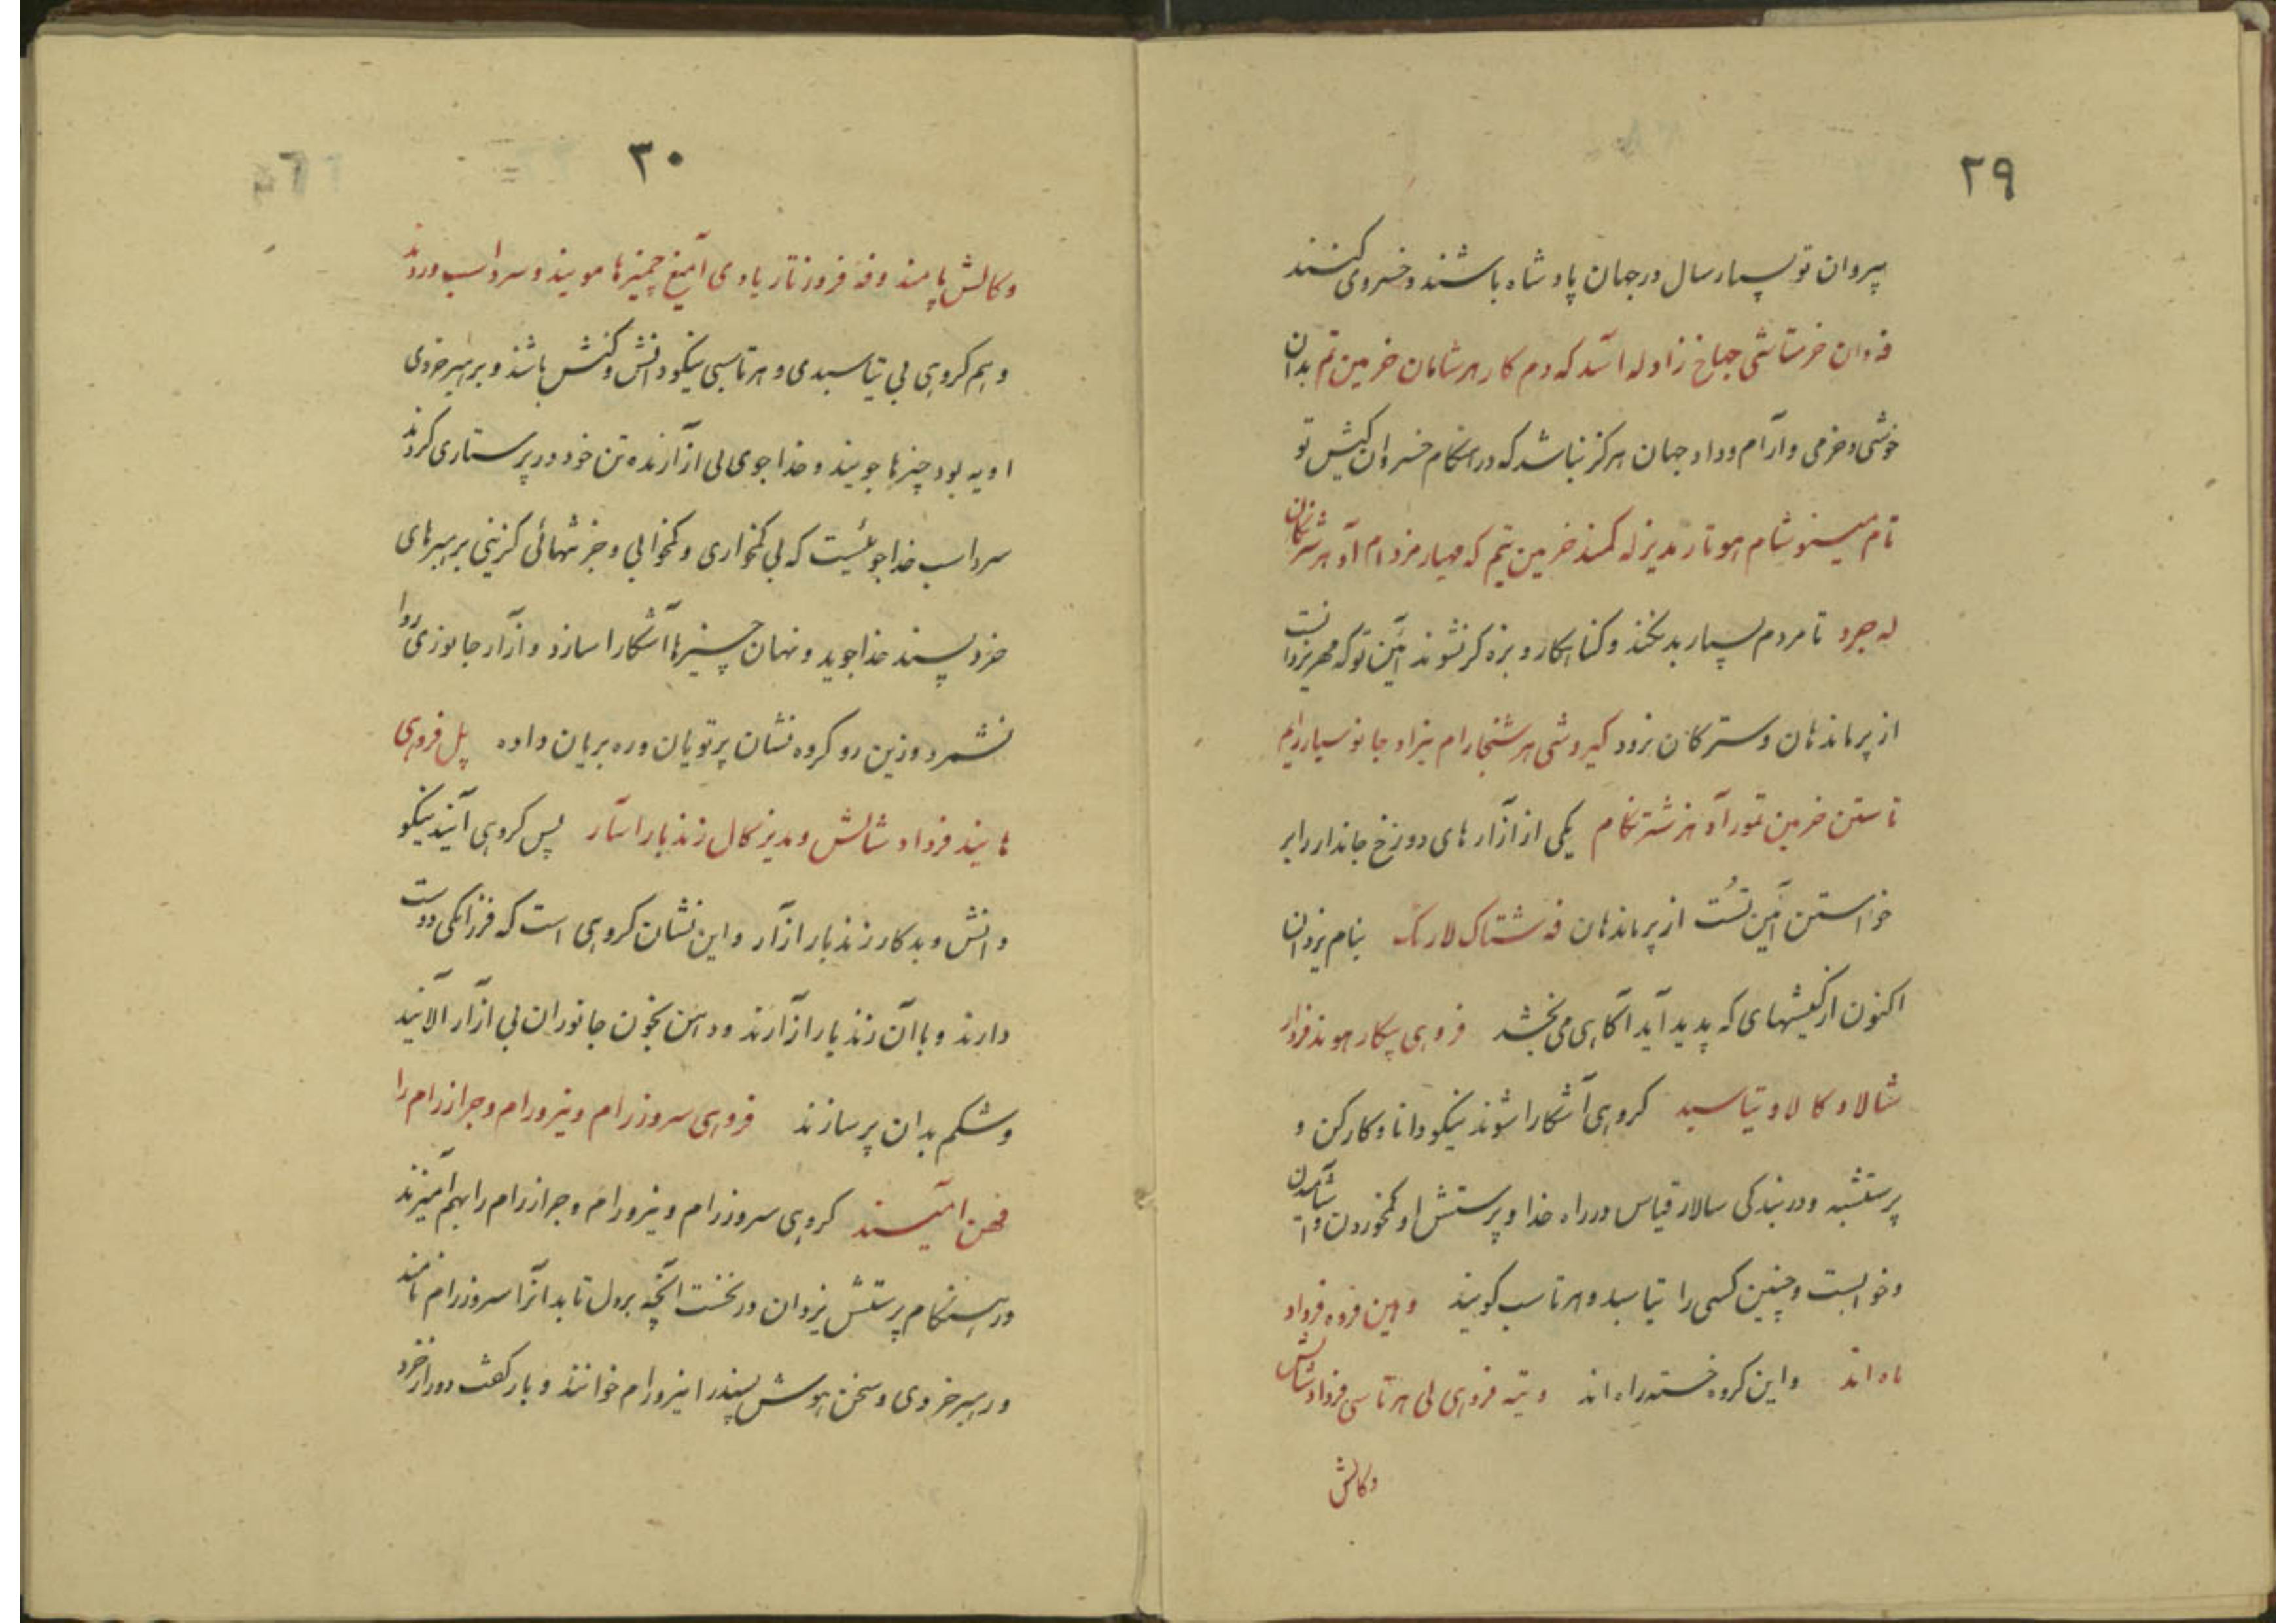 ٢٩
پیروان تو بسیار سال در جهان پادشاه باشند و خسروی کنند
فه دان خرمتاشی جهاخ زاد له اسد که دم کار هرشامان خرمین تم بدان
خوشی و خرمی و آرام و داد جهان هرگز نباشد که در هنگام خسروان کیش تو
تام مینوشام هو تار بدیزله کمند خرمین تیم که مهیار مزدام آد
له جرد تا مردم بسیار بد نکنند و کناهکار و بزه کر نشوند آئین تو که مهر یزدانست
از پرماندهان و سترکان نرود کیروشی هرشنجارام نیراد جانوسیارزام
تاستن خرمین تمور آد هرشترنکام یکی از آزارهای دوزخ جاندار را بر
خواستن آئین تُست از پرماندهان فه شتاک لارنک بنام یزدان
اکنون از کیشهای که پدید آید آگاهی می بخشد فروهی پیکار هوند فرزار
شالاد و کالاد و تپاسبد کروهی آشکارا شوند نیکو دانا و کارکن و
پرستشبد و در بندکی سالار قیاس در راه خدا و پرستش او کمخوردن و آشامیدن
و خوابست و چنین کسی را تپاسبد و هرتاسب کویند و هین فروه فرداد
ماه اند و این کروه خسته راه اند و تیه فروهی لی هرتاسی فرداد شالش
وکالش
٣٠
وکالش پامند و فه فروزتار یادی آمیغ چمیزها مویند و سرداسب وردند
و هم کروهی بی تپاسبدی و هرتاسبی نیکو دانش و کنش باشند و برهبر خردی
او به بود چیزها جویند و خدا جوی بی آزارنده تن خود در پرستاری کردند
سرداسب خداجوئیست که بی کمخواری و کمخوابی و جز تنهائی کزینی برهبرهای
خرد پسند خدا جوید و نهان چیزها آشکارا سازد و آزار جانوری روا
نشمرد و زین رو کروه نشان پرتویان و رهبریان داده پل فروهی
هایند فرداد شالش و مدیز کال زندبار آسار پس کروهی آیند نیکو
دانش و بد کار زندبار آزار و این نشان کروهی است که فرزانکی دوست
دارند و با آن زندبار آزارند و دهن بخون جانوران بی آزار آلایند
و شکم بدان پر سازند فروهی سروزرام و نیرورام و جرازرام را
فهن آمیسند کروهی سروزرام و نیرورام و جرازرام را بهم آمیزند
در هنکام پرستش یزدان در نخست آنچه بر دل تابد آنرا سروزرام نامند
و رهبر خردی و سخن هوش پسند را نیرورام خوانند و بار کفت دور از خرد